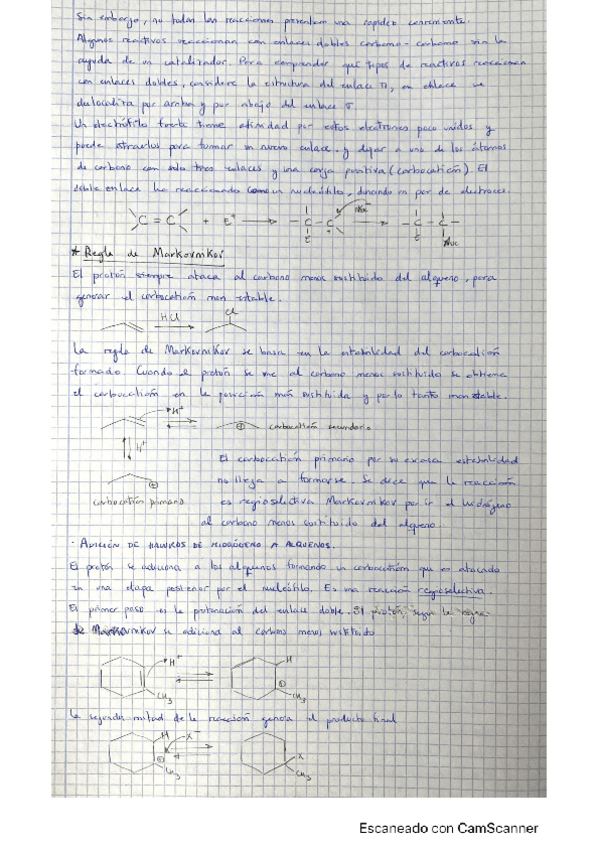 Sin embargo, no todas las reacciones presentan una rapidez conveniente.
Algunos reactivos reaccionan con enlaces dobles carbono-carbono sin la
ayuda de un catalizador. Para comprender qué tipos de reactivos reaccionan
con enlaces dobles, considere la estructura del enlace π, en enlace se
deslocaliza por arriba y por abajo del enlace σ.
Un electrófilo fuerte tiene afinidad por estos electrones poco unidos y
puede atraerlos para formar un nuevo enlace, y dejar a uno de los átomos
de carbono con solo tres enlaces y una carga positiva (carbocatión). El
doble enlace ha reaccionado como un nucleófilo, donando un par de electrones.
C = C + E⁺ → - C - C - Nuc⁻ → - C - C -
+
E E Nuc
* Regla de Markovnikov
El protón siempre ataca al carbono menos sustituido del alqueno, para
generar el carbocatión más estable.
HCl Cl
La regla de Markovnikov se basa en la estabilidad del carbocatión
formado. Cuando el protón se une al carbono menos sustituido se obtiene
el carbocatión en la posición más sustituida y por lo tanto más estable.
H⁺ ⊕ carbocatión secundario
H⁺
El carbocatión primario por su escasa estabilidad
⊕ no llega a formarse. Se dice que la reacción
carbocatión primario es regioselectiva Markovnikov por ir el hidrógeno
al carbono menos sustituido del alqueno.
· ADICIÓN DE HALUROS DE HIDRÓGENO A ALQUENOS.
El protón se adiciona a los alquenos formando un carbocatión que es atacado
en una etapa posterior por el nucleófilo. Es una reacción regioselectiva.
El primer paso es la protonación del enlace doble. El protón, según la regla
de Markovnikov se adiciona al carbono menos sustituido
H⁺ H
⊕
CH₃ CH₃
La segunda mitad de la reacción genera el producto final
H X⁻
⊕ X
CH₃ CH₃
Escaneado con CamScanner